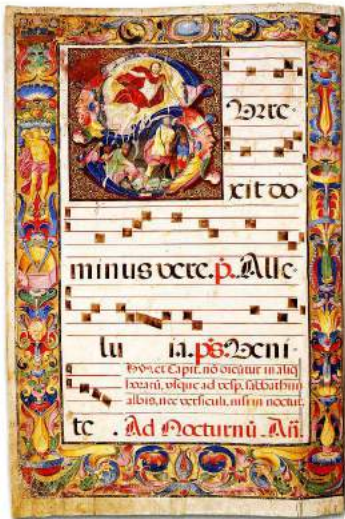 S
Vrre-
xit do
minus vere. p̃. Alle-
lu ia. ps. Veni-
et Capit. nõ dicũtur in aliq̃
horarũ, vsque ad vesp. sabbathi in
albis, nec versiculi, nisi in noctur.
te . Ad Nocturnũ. Añ.